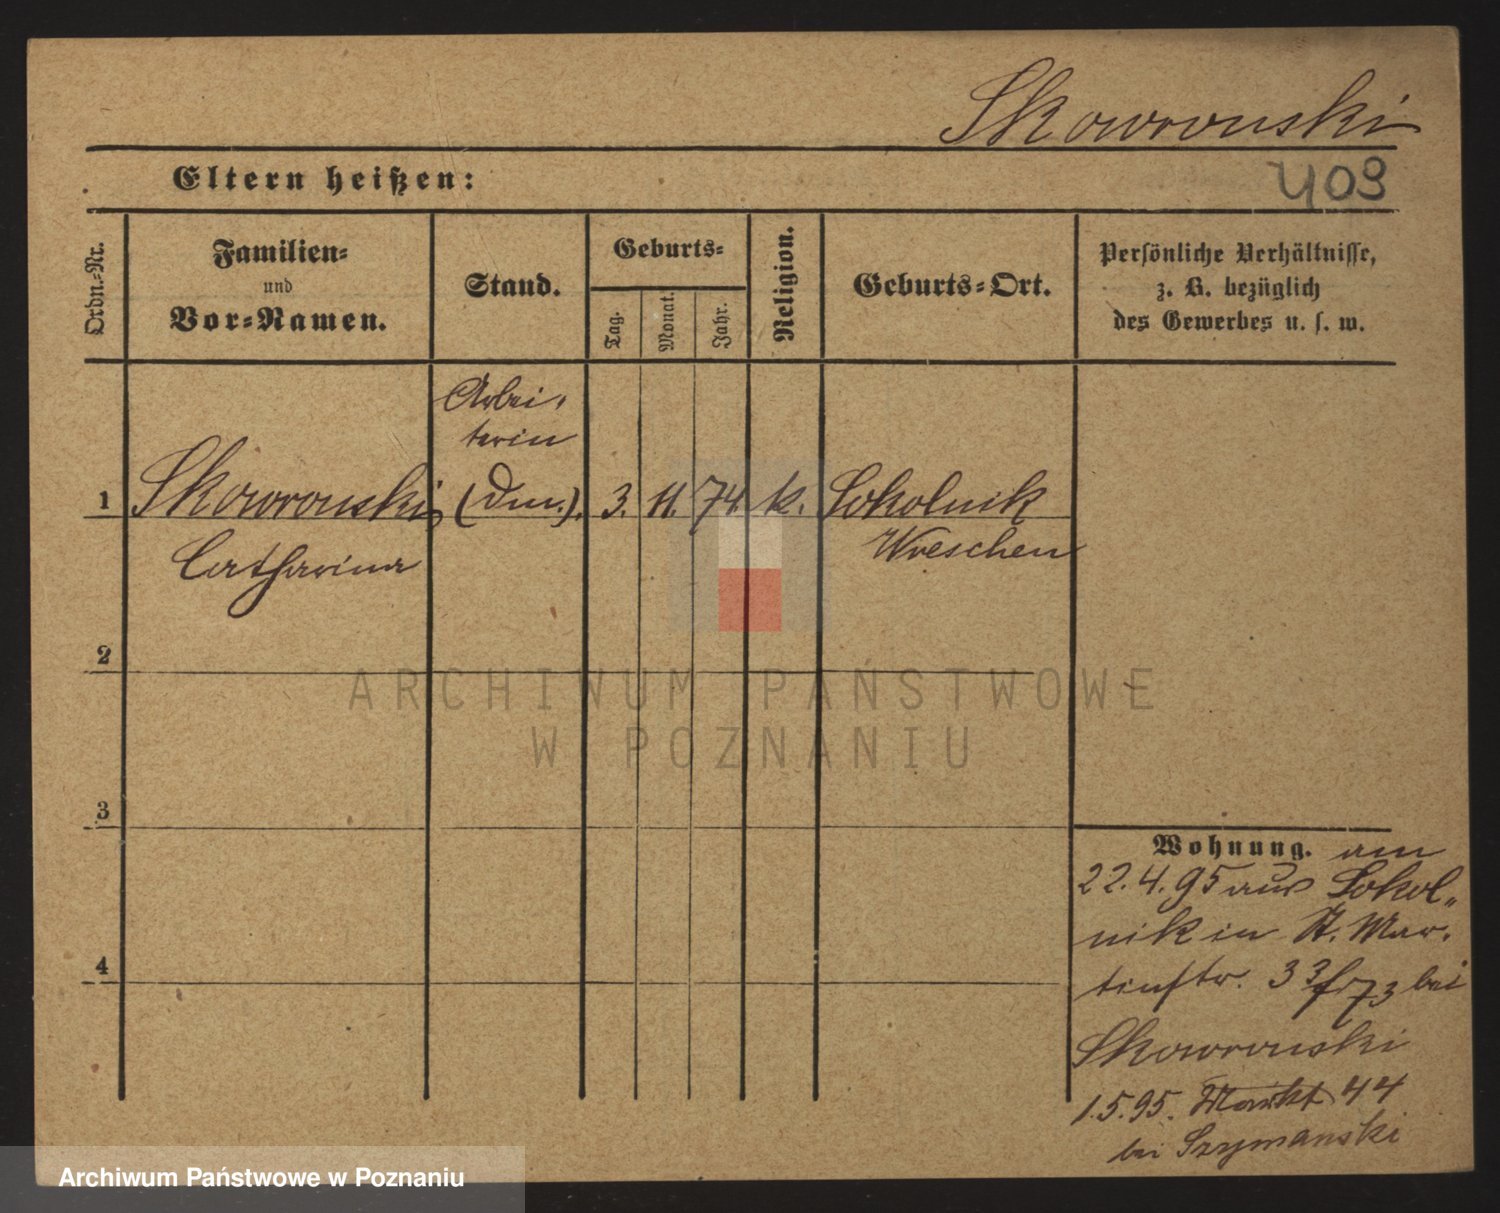 Skowronski
Eltern heißen:
409
Ordn.-Nr.
Familien-
und
Vor-Namen.
Stand.
Geburts-
Tag.
Monat.
Jahr.
Religion.
Geburts-Ort.
Persönliche Verhältnisse,
z. B. bezüglich
des Gewerbes u. s. w.
Arbei-
terin
1
Skowronski
(Dm.).
3.
11.
74.
k.
Sokolnik
Wreschen
Catharina
2
ARCHIWUM PAŃSTWOWE
W POZNANIU
3
Wohnung. am
22.4.95 aus Sokol-
nik in St. Mar-
tinstr. 33 bei
4
Skowronski
1.5.95. Markt 44
bei Szymanski
Archiwum Państwowe w Poznaniu